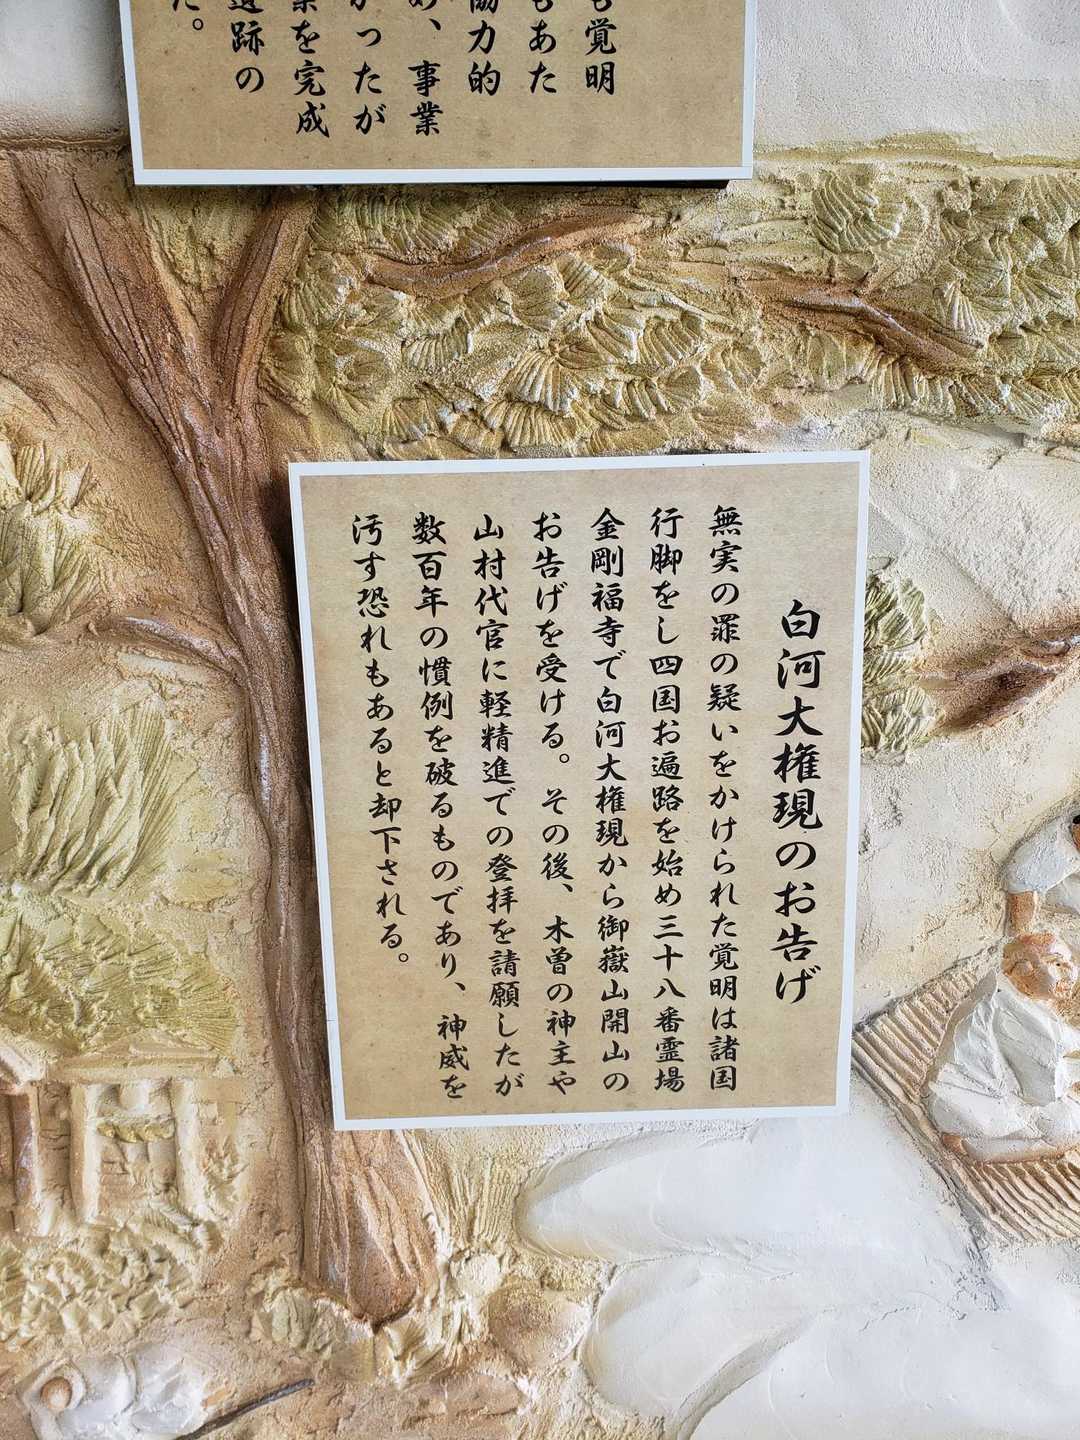 も覚明
もあた
協力的
め、事業
かったが
業を完成
遺跡の
た。
白河大権現のお告げ
無実の罪の疑いをかけられた覚明は諸国
行脚をし四国お遍路を始め三十八番霊場
金剛福寺で白河大権現から御嶽山開山の
お告げを受ける。その後、木曽の神主や
山村代官に軽精進での登拝を請願したが
数百年の慣例を破るものであり、神威を
汚す恐れもあると却下される。